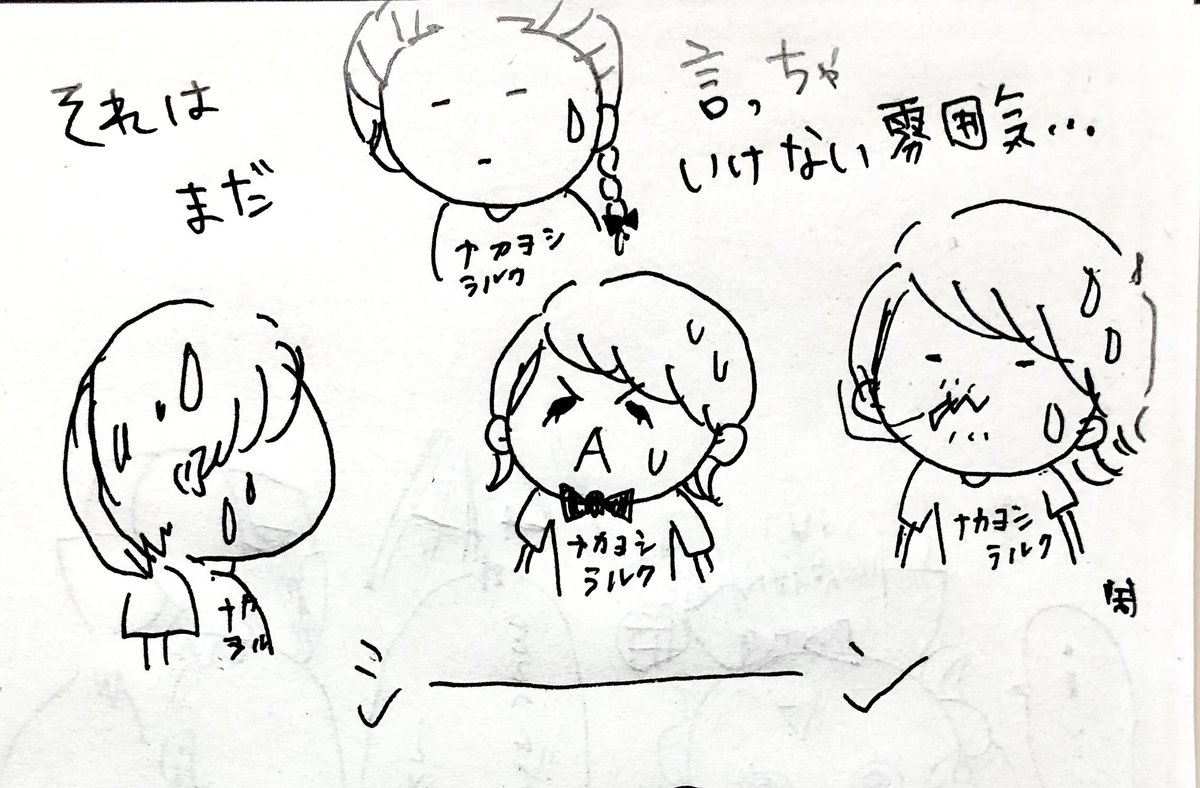 それは
まだ
言っちゃ
いけない雰囲気…
ナカヨシ
ラルク
ナカヨシ
ラルク
ナカヨシ
ラルク
ナカ
シーーン